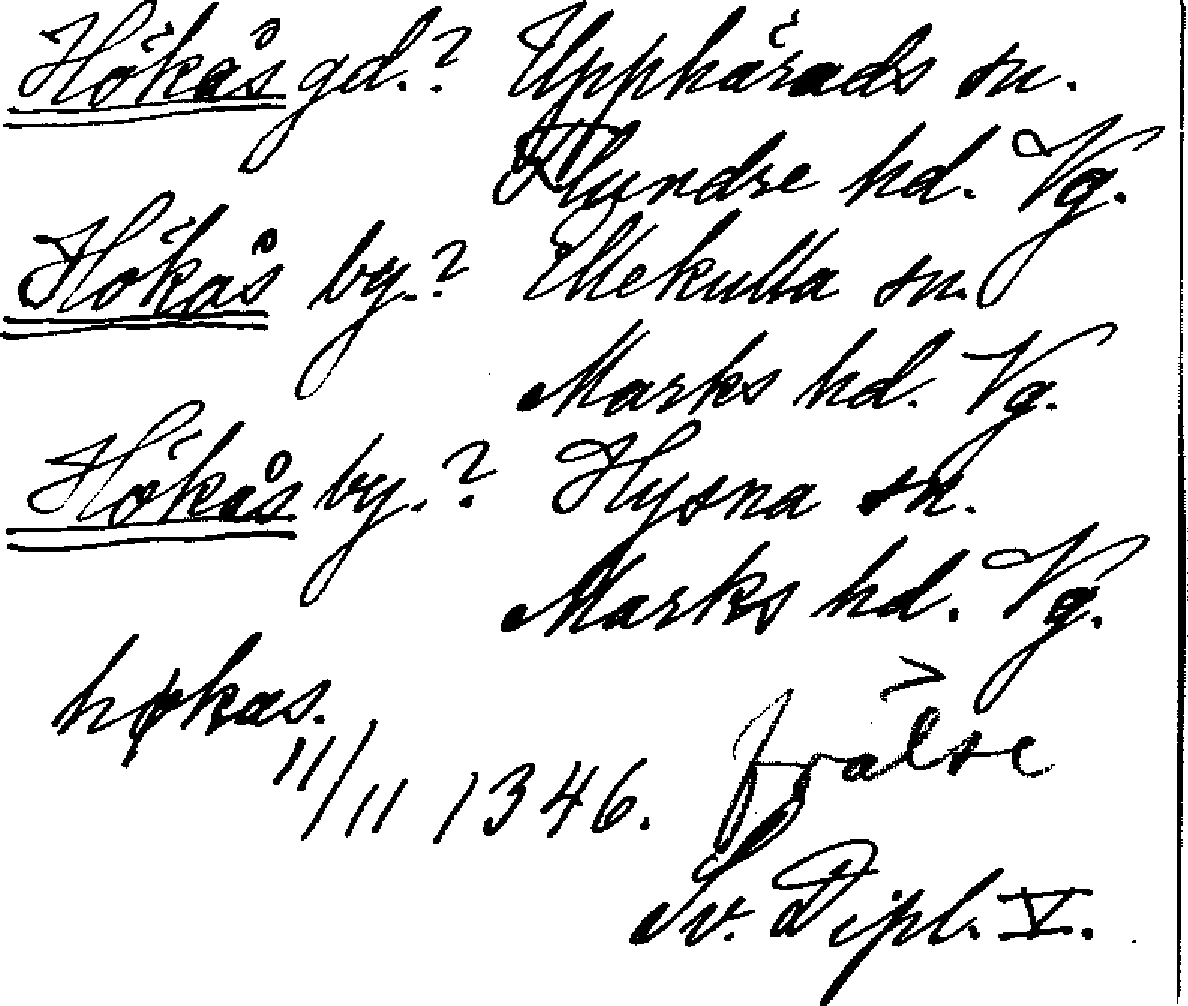 Hökås gd.? Upphärads sn.
Flundre hd. Vg.
Hökås by.? Öllekulla sn.
Marks hd. Vg.
Hökås by.? Hyssna sn.
Marks hd. Vg.
høkas.
11/11 1346. frälse
Sv. Dipl. V.